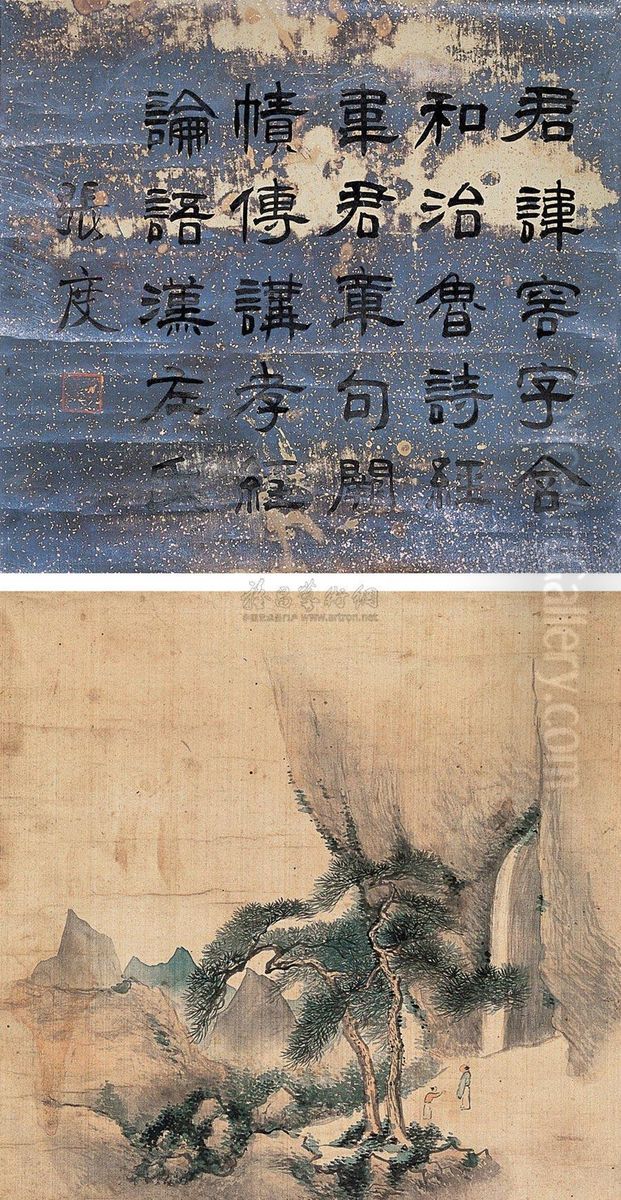 君諱字含
和治魯詩經
韋君章句闕
幘傳講孝經
論語漢左氏
張度
雅昌藝術網
www.artron.net
Gallery.com